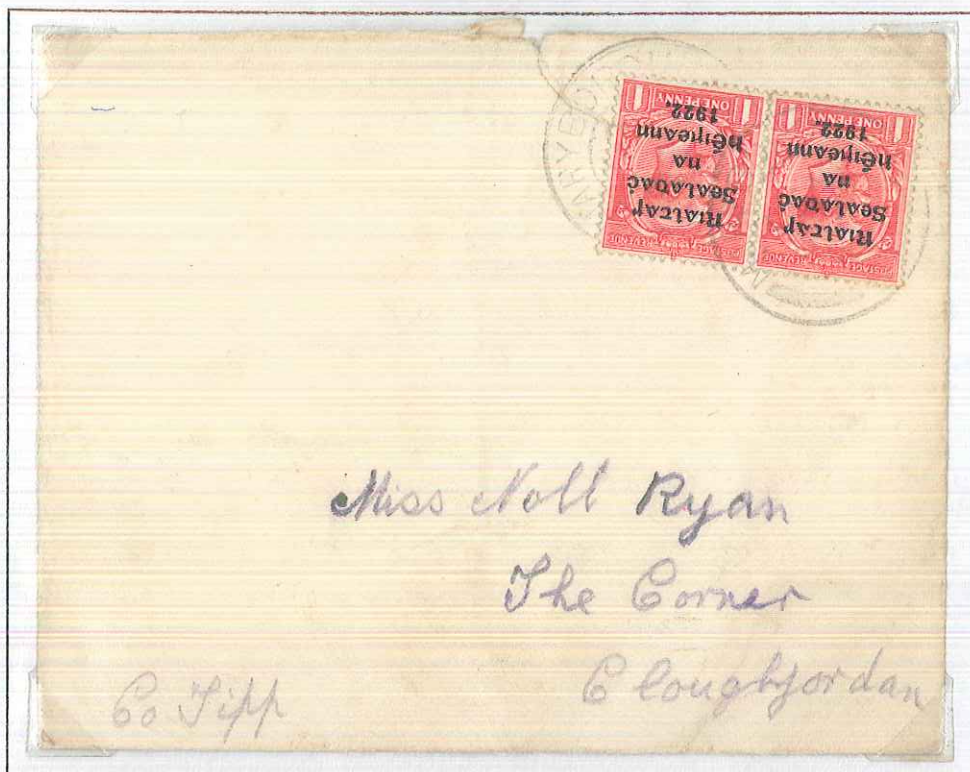 MARYBORO
ONE PENNY
Rialtas
Sealadaċ
na
hÉireann
1922
POSTAGE REVENUE
ONE PENNY
Rialtas
Sealadaċ
na
hÉireann
1922.
POSTAGE REVENUE
Miss Noll Ryan
The Corner
Cloughjordan
Co Tipp